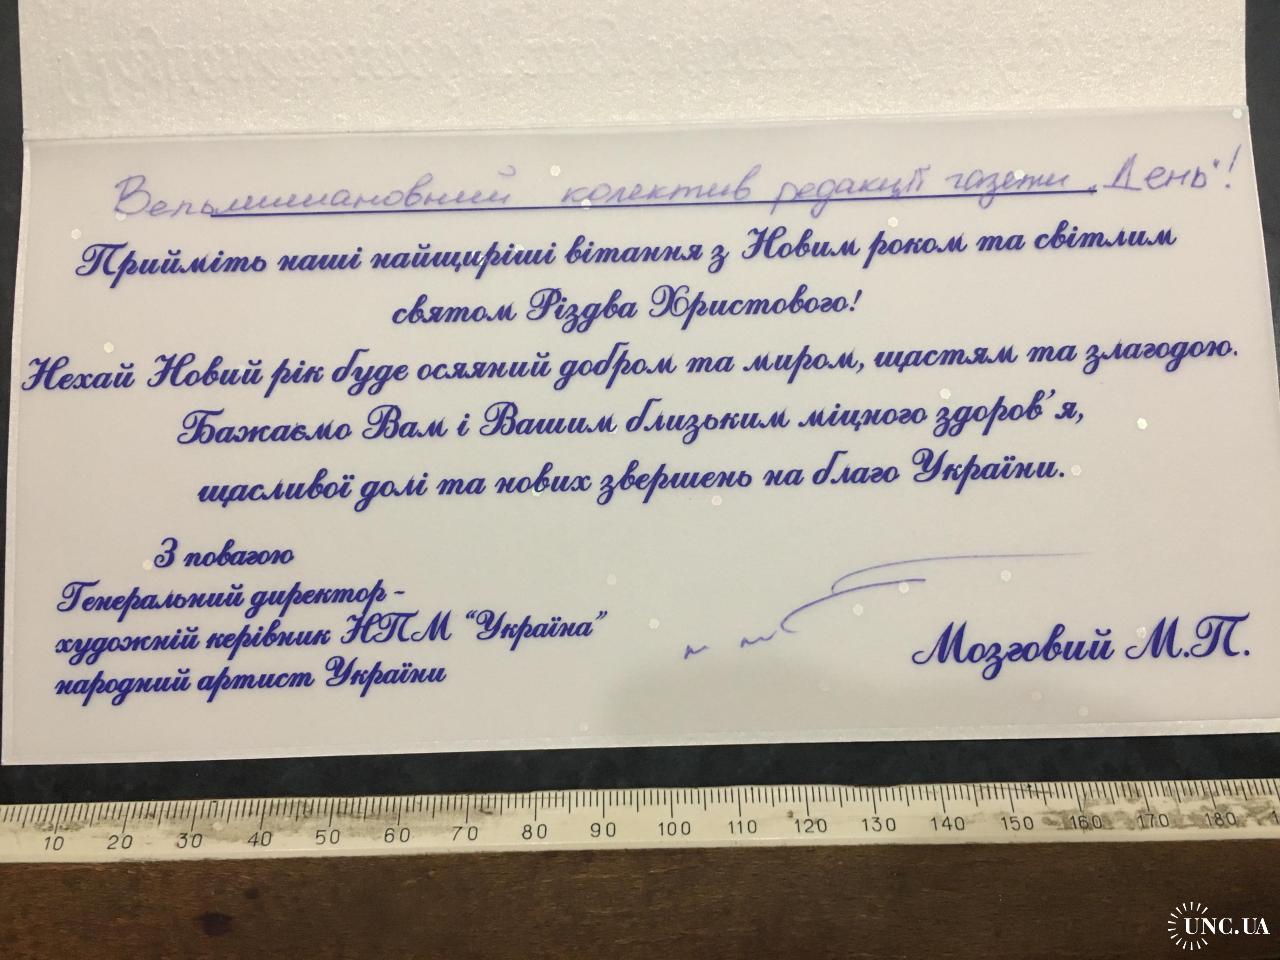 Вельмишановний колектив редакції газети „День"!
Прийміть наші найщиріші вітання з Новим роком та світлим
святом Різдва Христового!
Нехай Новий рік буде осяяний добром та миром, щастям та злагодою.
Бажаємо Вам і Вашим близьким міцного здоров'я,
щасливої долі та нових звершень на благо України.
З повагою
Генеральний директор -
художній керівник НПМ “Україна”
народний артист України
Мозговий М.П.
10 20 30 40 50 60 70 80 90 100 110 120 130 140 150 160 170 180
UNC.UA